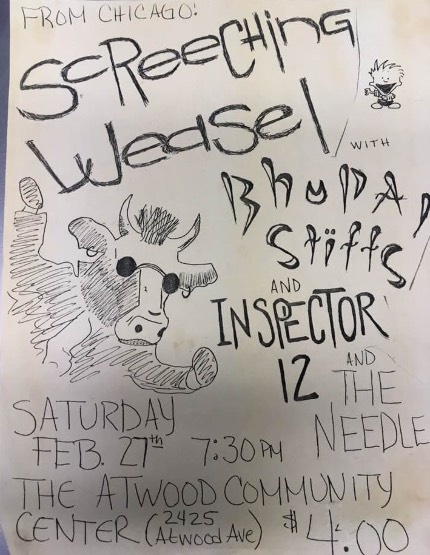 FROM CHICAGO:
SCREECHING
WEASEL
WITH
BhopAl
Stiffs
AND
INSPECTOR
12
AND
THE
NEEDLE
SATURDAY
FEB. 27th 7:30PM
THE ATWOOD COMMUNITY
CENTER (2425
Atwood Ave) $4.00